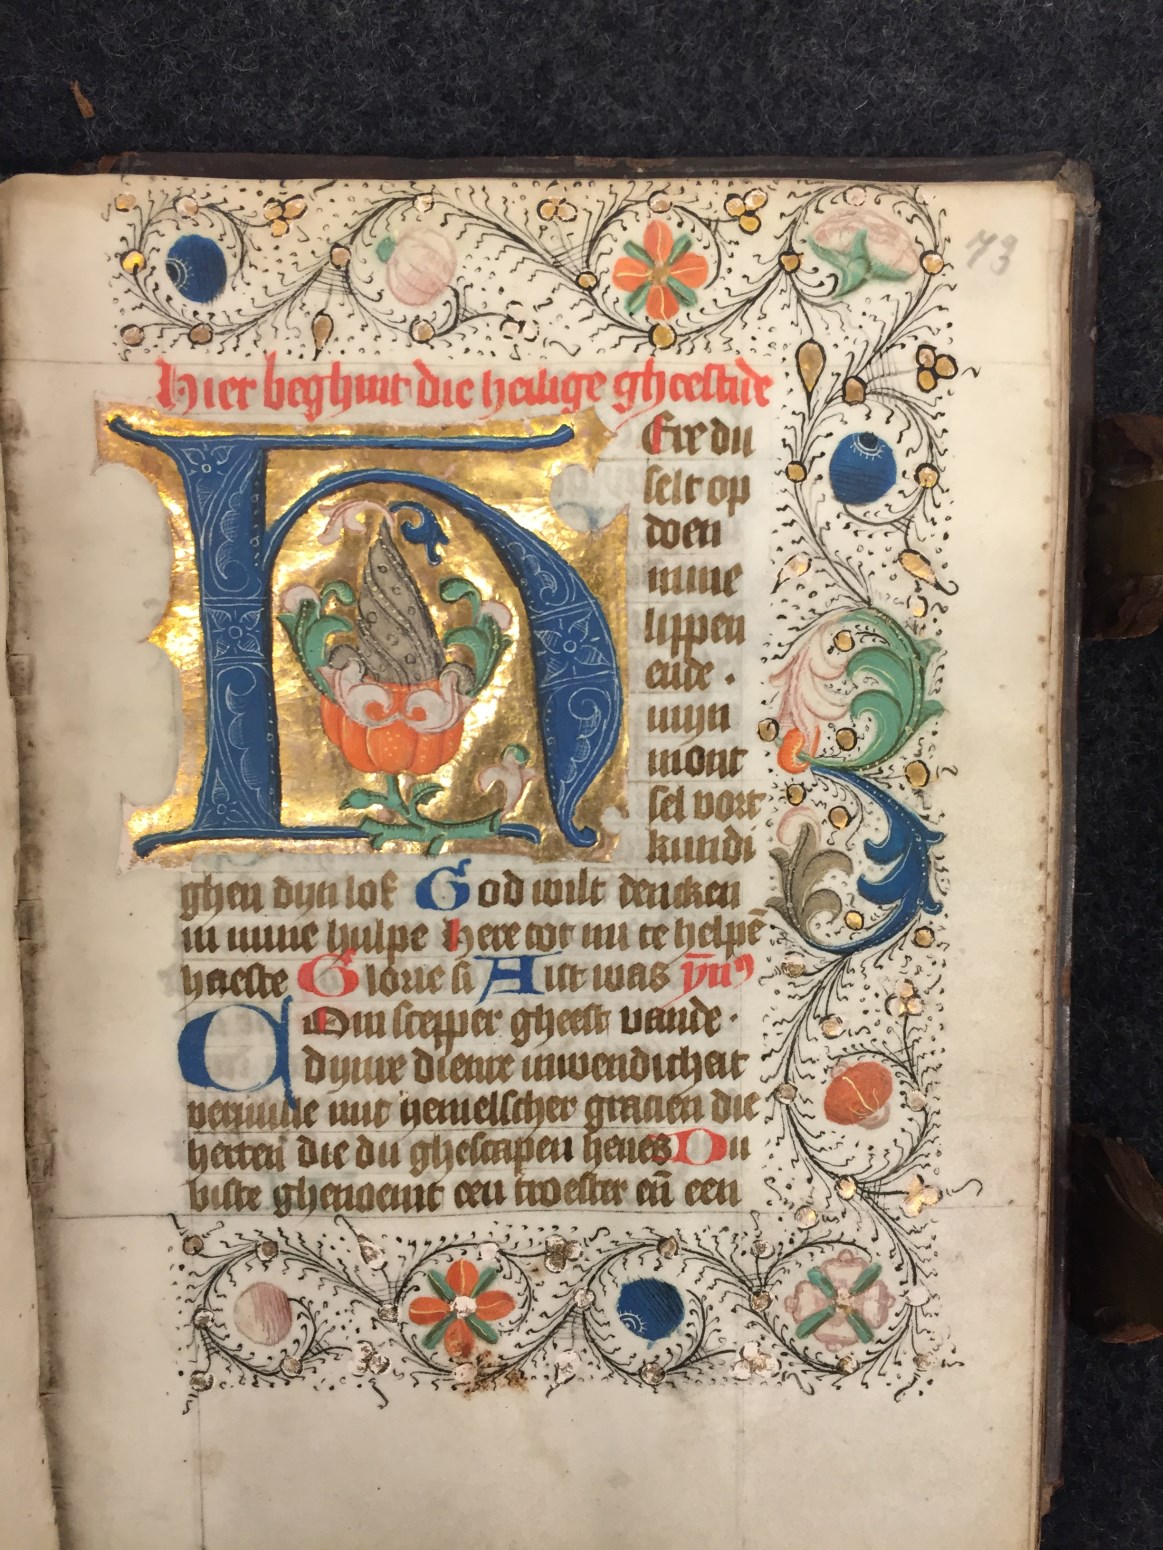 73
Hier beghint die heilige gheestide
HEre du
selt op
doen
mine
lippen
ende ·
mijn
mont
sel vort
kundi
ghen dijn lof God wilt dencken
in mine hulpe Here tot mi te helpē
haeste Glorie si Alst was ȳn
COm scepper gheest vande ·
dijnre dienre inwendicheit
vervulle mit hemelscher gracien die
herten die du ghescapen heves Du
biste ghenoemt een troester eñ een